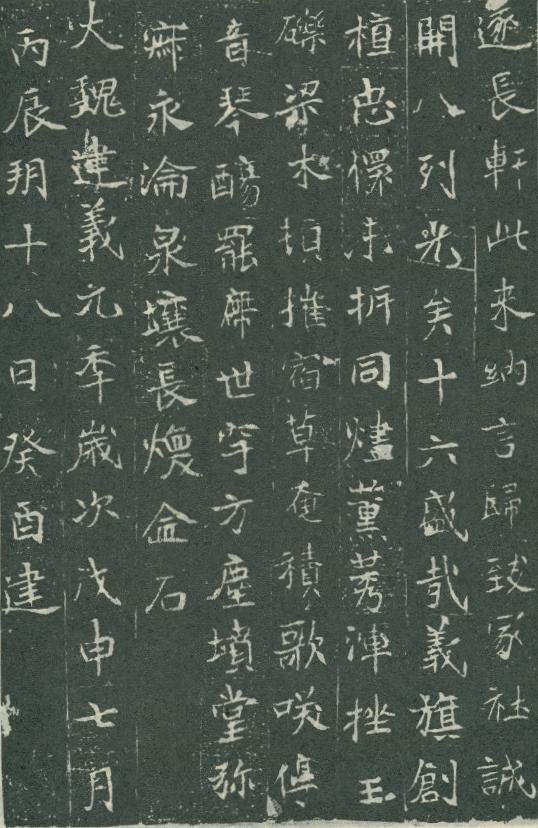 逐長軒此来納言歸致冢社誠
開八列光矣十六盛哉義旗創
植忠㒟未折同燼薰莠渾挫玉
礫梁木損摧宿草奄積歌咲俱
音琴酌罷席世穸方塵墳堂弥
寐永淪泉壤長煥金石
大魏建義元年歲次戊申七月
丙辰朔十八日癸酉建